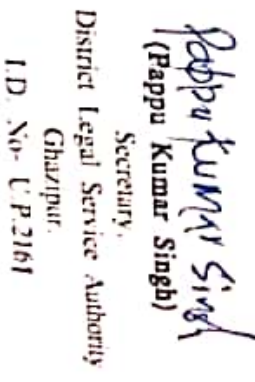 Pappu Kumar Singh
(Pappu Kumar Singh)
Secretary,
District Legal Service Authority
Ghazipur.
I.D. No- U.P.2161